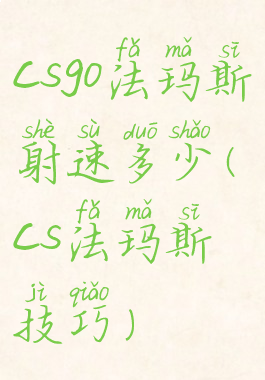 fǎ mǎ sī
csgo法玛斯
shè sù duō shǎo
射速多少(
fǎ mǎ sī
cs法玛斯
jì qiǎo
技巧)